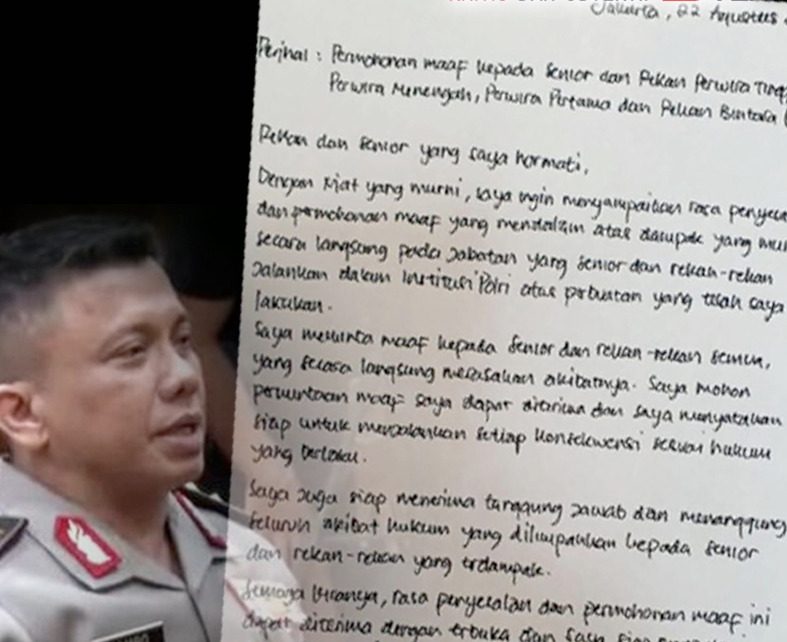 Jakarta, 22 Agustus
Perihal : Permohonan maaf kepada Senior dan Rekan Perwira
Perwira Menengah, Perwira Pertama dan Rekan Bintara
Rekan dan Senior yang saya hormati,
Dengan niat yang murni, saya ingin menyampaikan rasa
dan permohonan maaf yang mendalam atas dampak yang
secara langsung pada jabatan yang senior dan rekan-rekan
jalankan dalam institusi Polri atas perbuatan yang telah saya
lakukan.
Saya meminta maaf kepada senior dan rekan-rekan semua,
yang secara langsung merasakan akibatnya. Saya mohon
permintaan maaf saya dapat diterima dan saya menyatakan
siap untuk menjalankan setiap konsekwensi sesuai hukum
yang berlaku.
Saya juga siap menerima tanggung jawab dan menanggung
seluruh akibat hukum yang dilimpahkan kepada senior
dan rekan-rekan yang terdampak.
Semoga kiranya, rasa penyesalan dan permohonan maaf ini
dapat diterima dengan terbuka dan saya siap